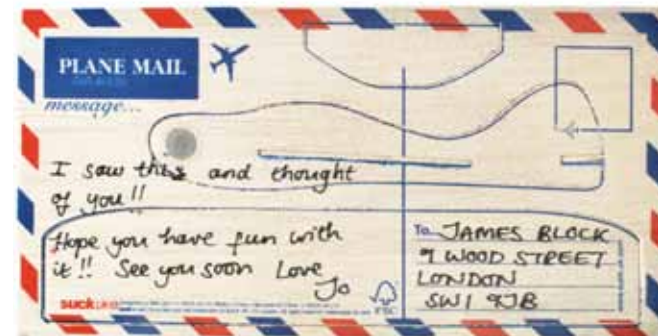 PLANE MAIL
message...
I saw this and thought
of you!!
Hope you have fun with
it!! See you soon Love
Jo
suck UK
To JAMES BLOCK
9 WOOD STREET
LONDON
SW1 9JB
FSC